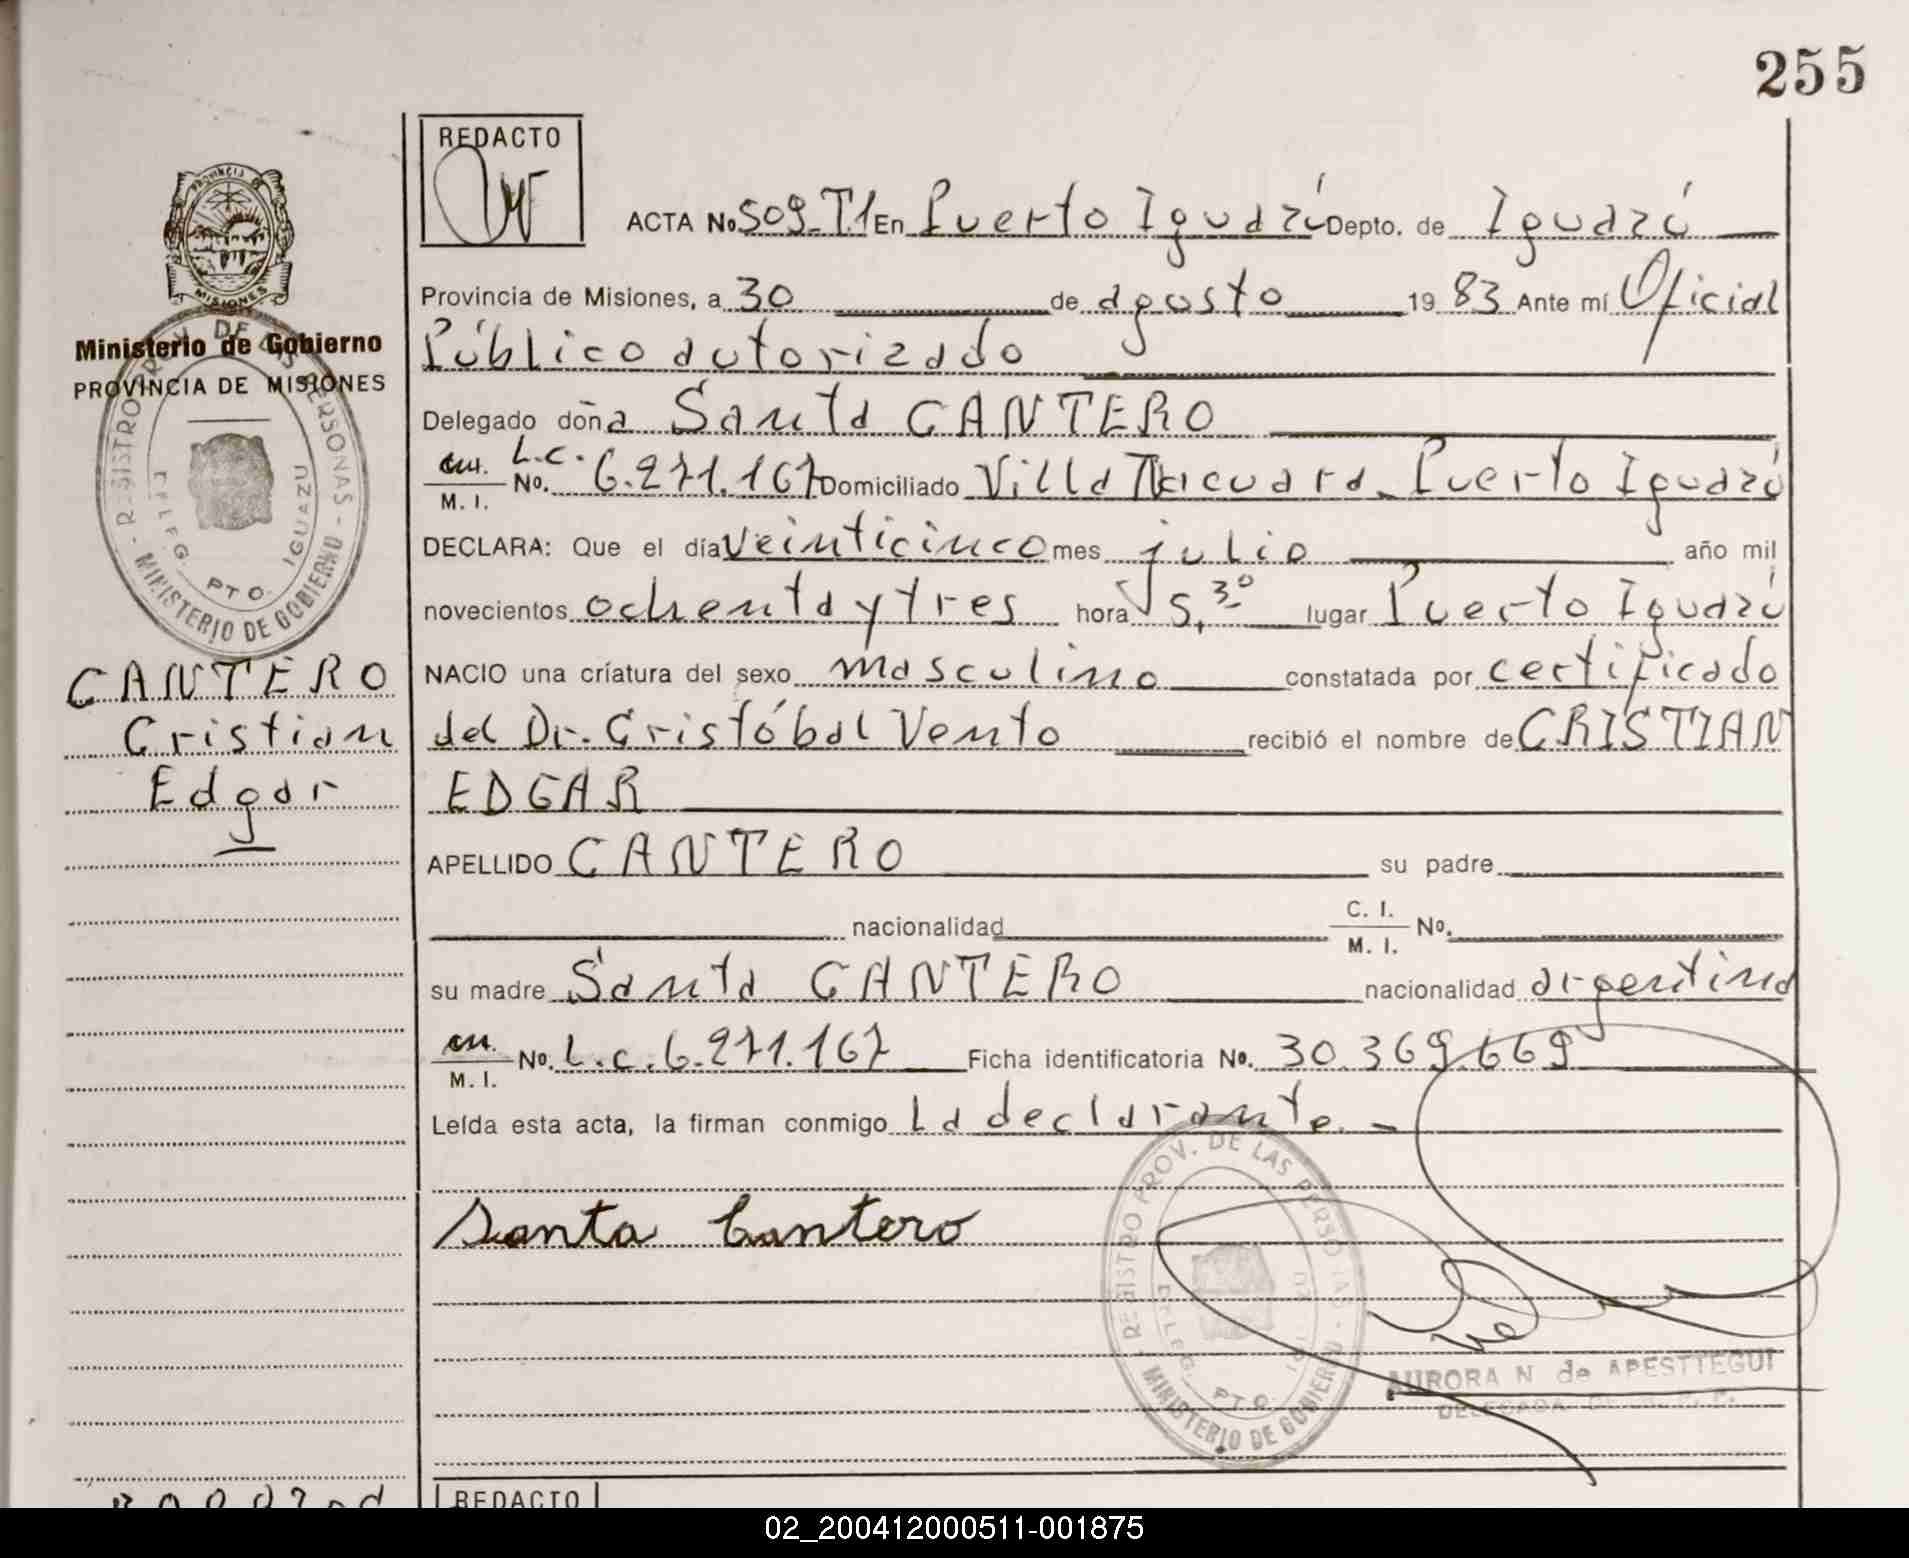 255
REDACTO
ACTA No 509-T.1 En Puerto Iguazú Depto. de Iguazú
Provincia de Misiones, a 30 de agosto 19 83 Ante mí Oficial
Público autorizado
Delegado doña Santa CANTERO
M. I. No. L.C. 6.271.167 Domiciliado Villa Tacuara - Puerto Iguazú
DECLARA: Que el día veinticinco mes julio año mil
novecientos ochenta y tres hora 5,30 lugar Puerto Iguazú
NACIO una críatura del sexo masculino constatada por certificado
del Dr. Cristóbal Vento recibió el nombre de CRISTIAN
EDGAR
APELLIDO CANTERO su padre
nacionalidad C. I. M. I. No.
su madre Santa CANTERO nacionalidad argentina
M. I. No. L.C. 6.271.167 Ficha identificatoria No. 30.369.669
Leída esta acta, la firman conmigo La declarante. -
Santa Cantero
REGISTRO PROV. DE LAS PERSONAS - MINISTERIO DE GOBIERNO
DELEG. PTO.
AURORA N de APESTTEGUI
DELEGADA
PROVINCIA DE MISIONES
Ministerio de Gobierno
PROVINCIA DE MISIONES
REGISTRO PROV. DE LAS PERSONAS - MINISTERIO DE GOBIERNO
DELEG. PTO. IGUAZU
CANTERO
Cristian
Edgar
REDACTO
02_200412000511-001875